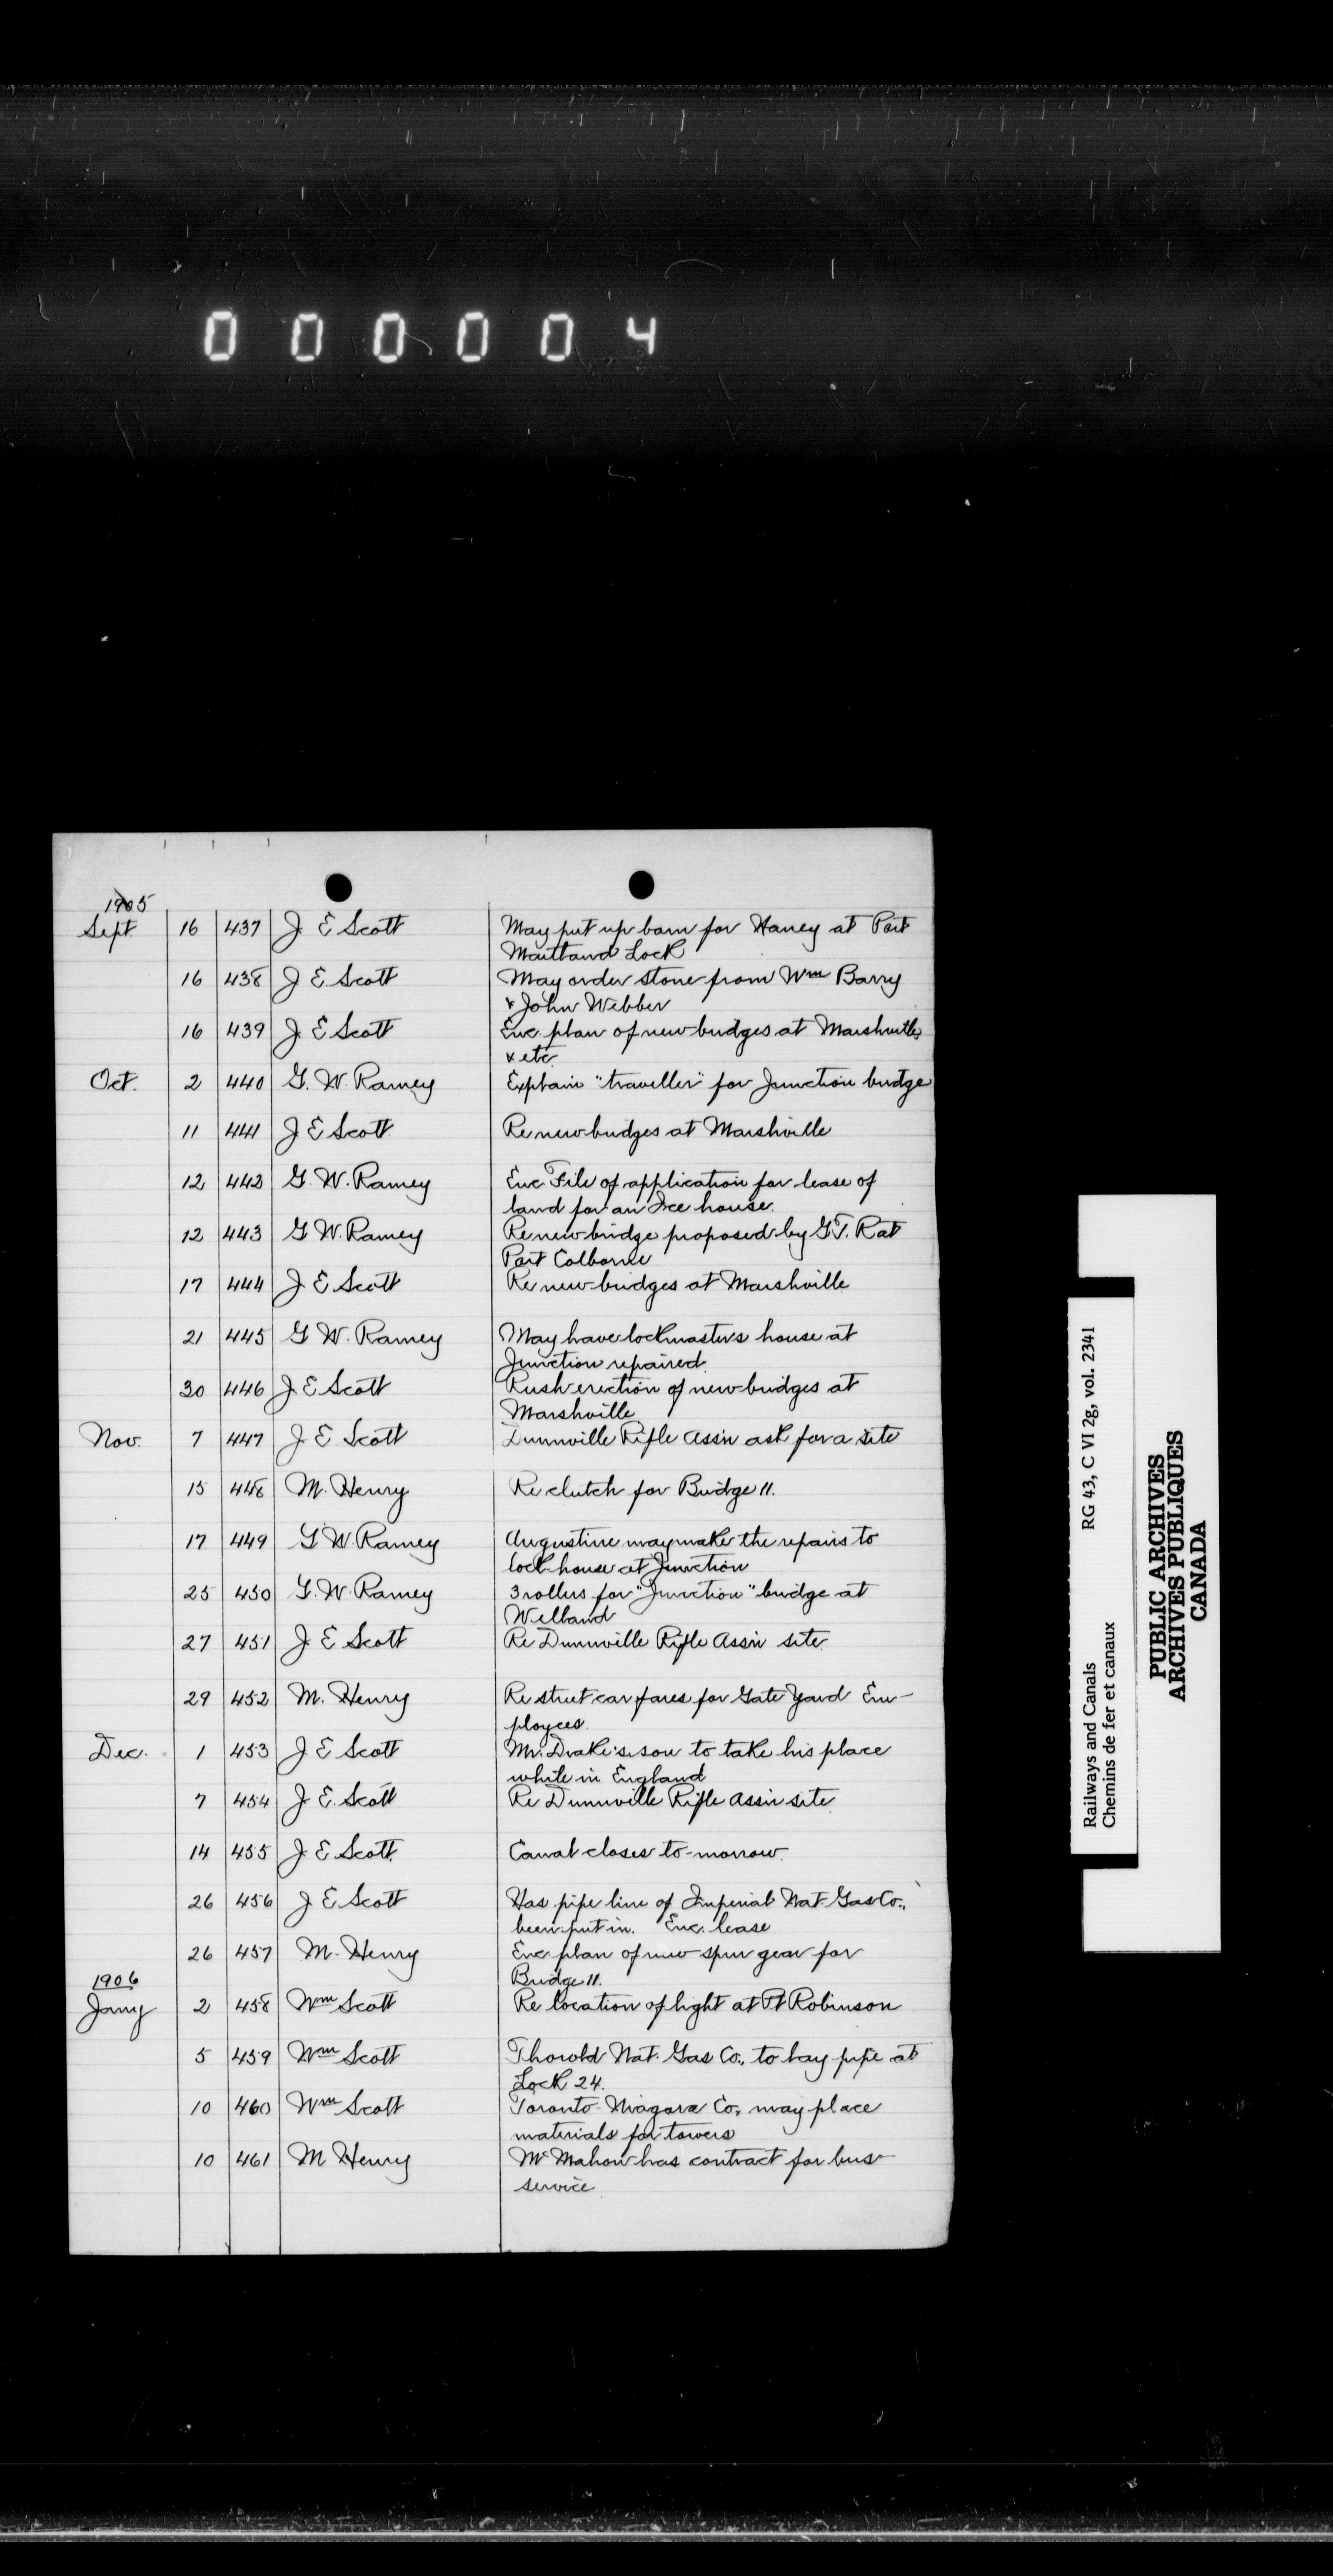 000004
1905
Sept. 16 437 J. E Scott May put up barn for Haney at Port
Maitland Lock
16 438 J E. Scott May order stone from Wm Barry
& John Webber
16 439 J. E Scott Enc. plan of new bridges at Marshville,
& etc.
Oct. 2 440 G. W. Ramey Explain "traveller" for Junction bridge
11 441 J E Scott. Re new bridges at Marshville
12 442 G. W. Ramey Enc File of application for lease of
land for an Ice house.
12 443 G W. Ramey Re new bridge proposed by G.T. R at
Port Colborne
17 444 J E Scott Re new bridges at Marshville
21 445 G W. Ramey May have lockmaster's house at
Junction repaired.
30 446 J E Scott Rush erection of new bridges at
Marshville
Nov. 7 447 J. E Scott Dunnville Rifle Assn ask for a site
15 448 M. Henry Re clutch for Bridge 11.
17 449 G W. Ramey Augustine may make the repairs to
lock-house at Junction
25 450 G. W. Ramey 3 rollers for "Junction" bridge at
Welland
27 451 J. E Scott Re Dunnville Rifle Assn site.
29 452 M. Henry Re street car fares for Gate Yard Em-
ployees.
Dec. 1 453 J E Scott Mr. Drake's son to take his place
while in England
7 454 J E. Scott Re Dunnville Rifle Assn site
14 455 J E Scott. Canal closes to-morrow.
26 456 J E Scott Has pipe line of Imperial Nat. Gas Co.,
been put in. Enc. lease
26 457 M. Henry Enc. plan of new spur gear for
Bridge 11.
1906
Jany 2 458 Wm Scott Re location of light at Pt Robinson
5 459 Wm Scott Thorold Nat. Gas Co., to lay pipe at
Lock 24.
10 460 Wm Scott Toronto-Niagara Co., may place
materials for towers
10 461 M Henry McMahon has contract for bus
service.
Railways and Canals RG 43, C VI 2g, vol. 2341
Chemins de fer et canaux
PUBLIC ARCHIVES
ARCHIVES PUBLIQUES
CANADA